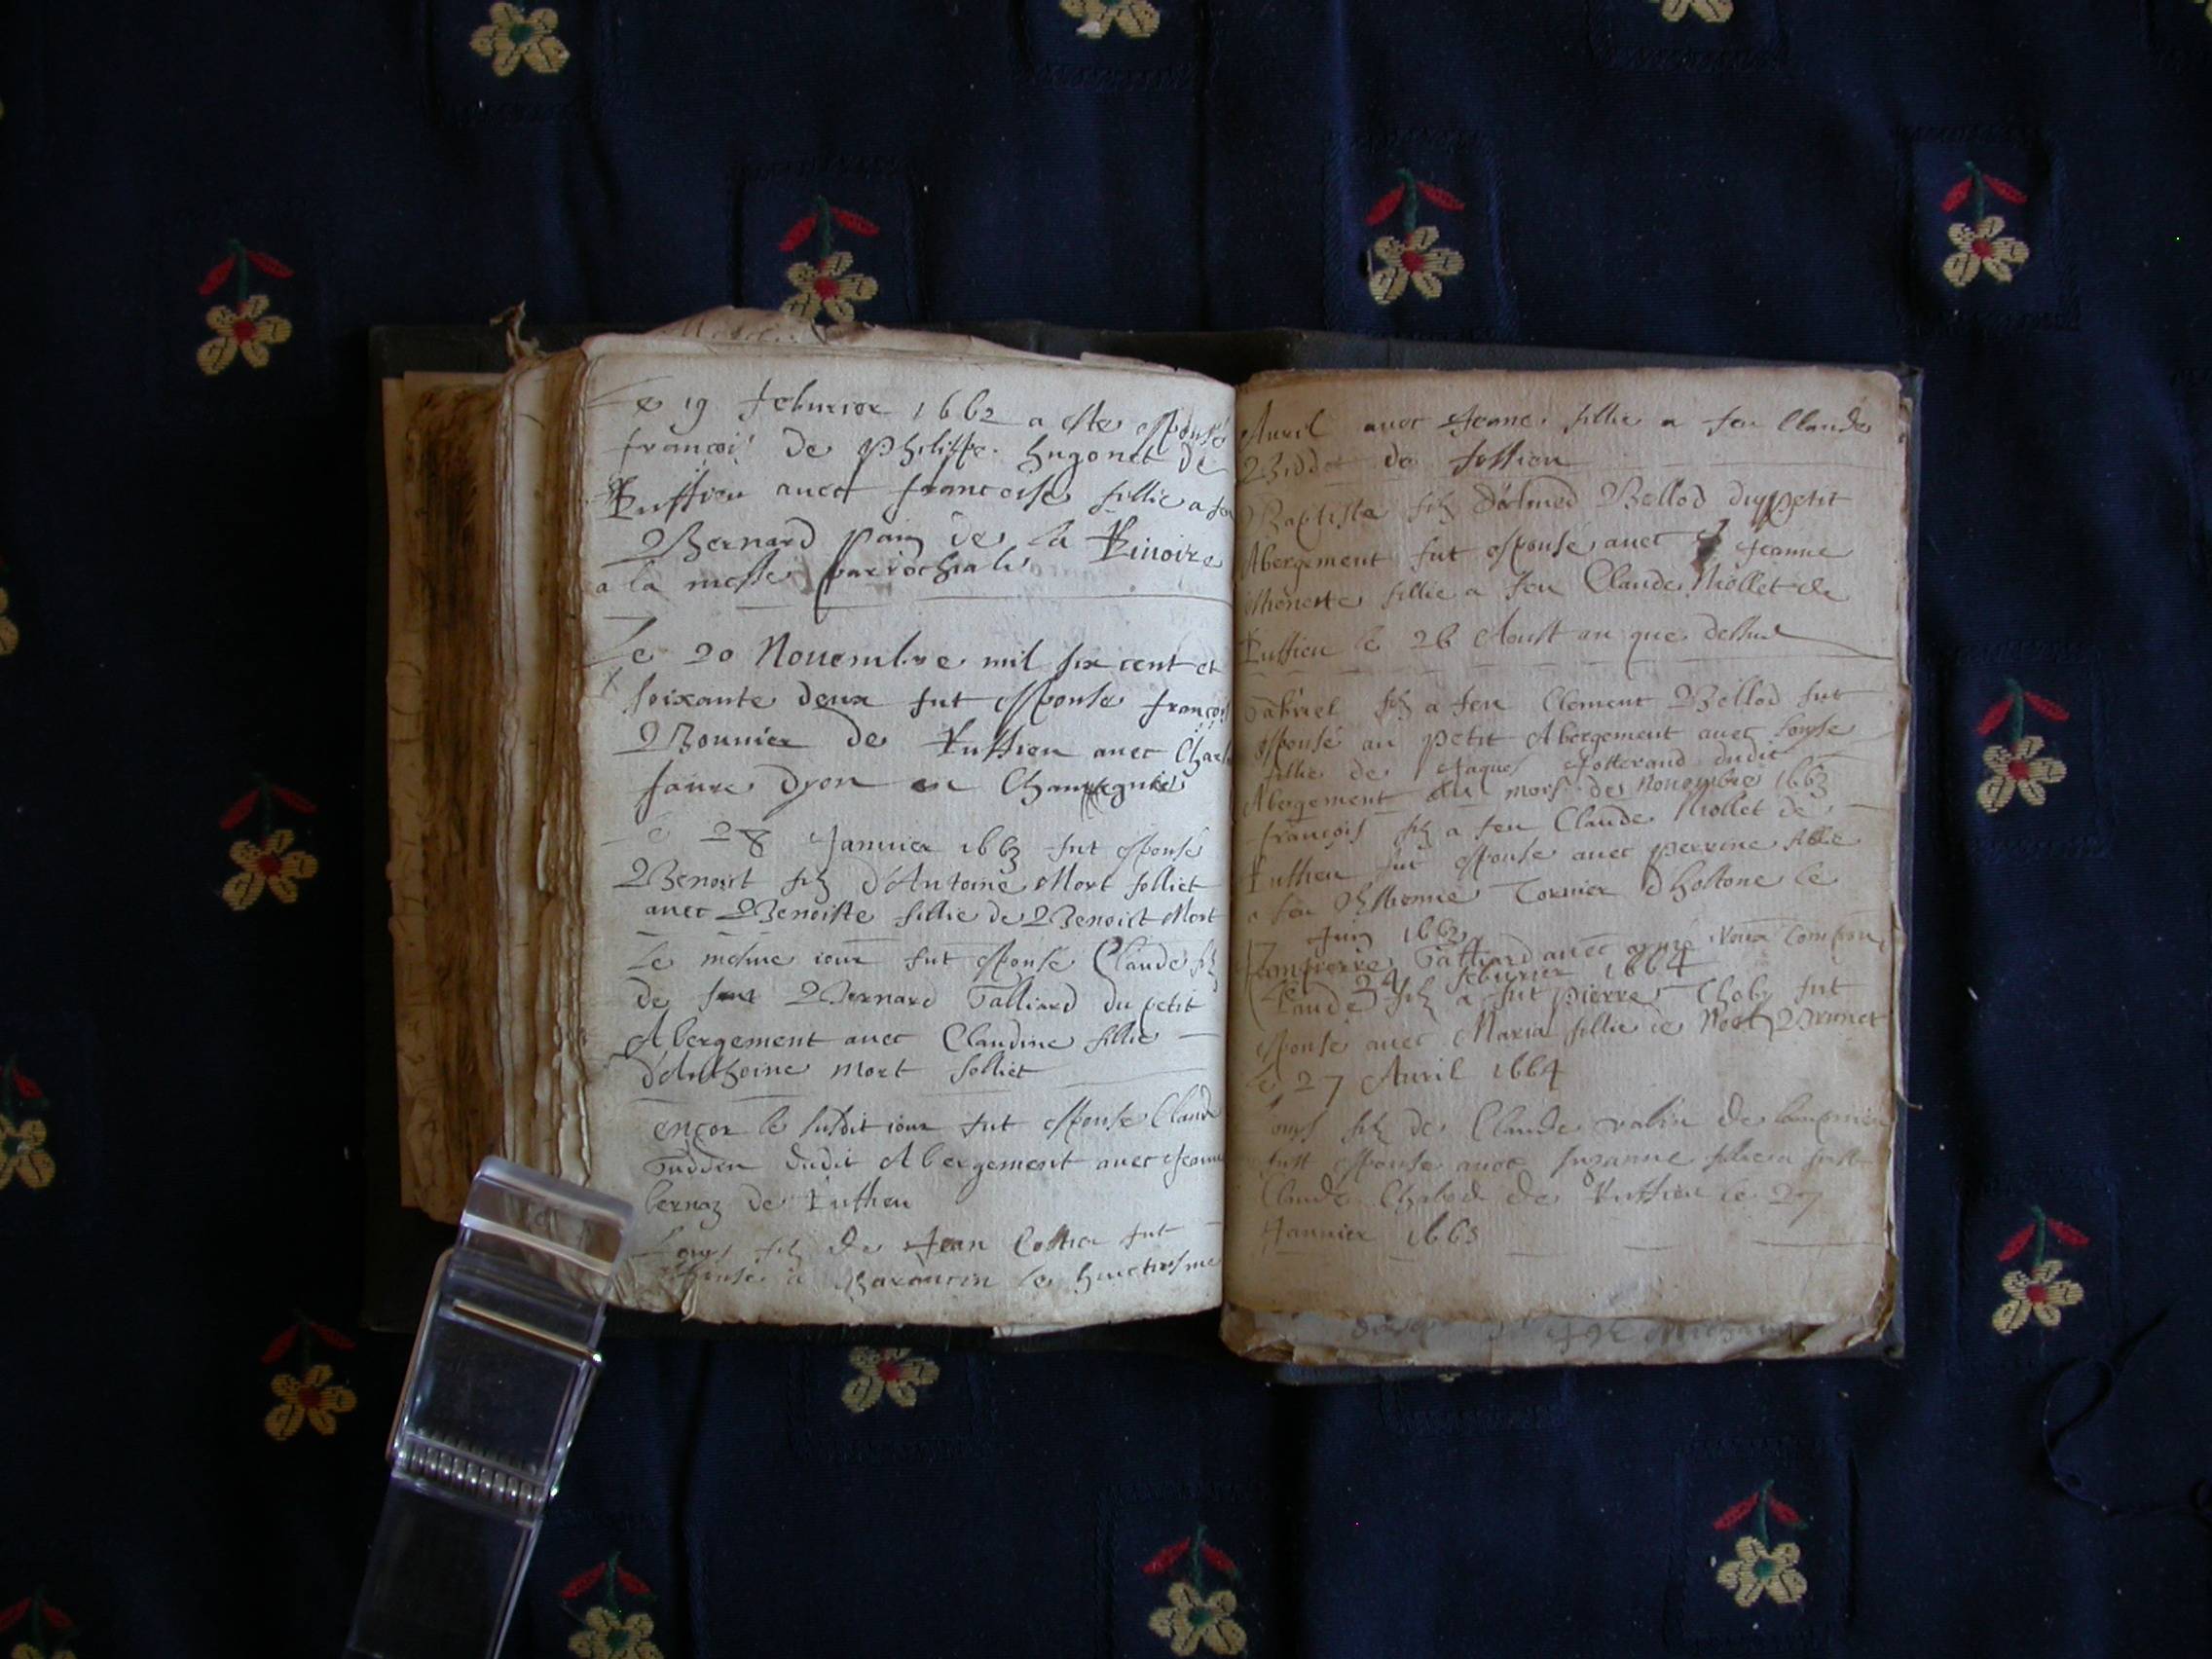 Le 19 feburier 1662 a este espousé
françois de philippe hugonet de
Ruffieu avec francoise fillie a feu
Bernard pain de la Rivoire
a la messe parrochiale
Le 20 Novembre mil six cent et
soixante deux fut espouse françois
Bonnier de Ruffieu avec
faure dyon en
Le 28 Januier 1663 fut espouse
Benoist filz d'Antoine Mort folliet
avec Benoiste fillie de Benoist Mort
Le mesme iour fut espouse Claude filz
de feu Bernard Talliard du petit
Abergement avec Claudine fillie
d'Anthoine mort folliet
encor le susdit iour fut espouse Claude
dudit Abergement avec Jeanne
bernaz de Ruffieu
Louys filz de Jean Cottier fut
espousé a le huictiesme
Avril avec Jeane fillie a feu Claude
Biddet de fossieu
Baptiste filz Bellod du petit
Abergement fut espousé avec Jeanne
fillie a feu Claude Niollet de
Ruffieu le 26 Aoust an que dessus
Gabriel filz a feu Clement Bellod fut
espousé au petit Abergement avec Louyse
fillie de Jaques Jotterand dudit
Abergement du mois de Novembre 1663
françois filz a feu Claude Niollet de
Ruffieu fut espouse avec perrine fillie
a feu Esthienne Tornier d'hostone le
17 Juin 1663
Jeanpierre Talliard avec
Le 24 feburier 1664
Claude filz a fut pierre Chaby fut
espousé avec Maria fillie de Noel Brunet
le 27 Avril 1664
Louys filz de Claude valin de
fust espouse avec Suzanne fillie a fust
Claude Chabod de Ruffieu le 27
Januier 1663